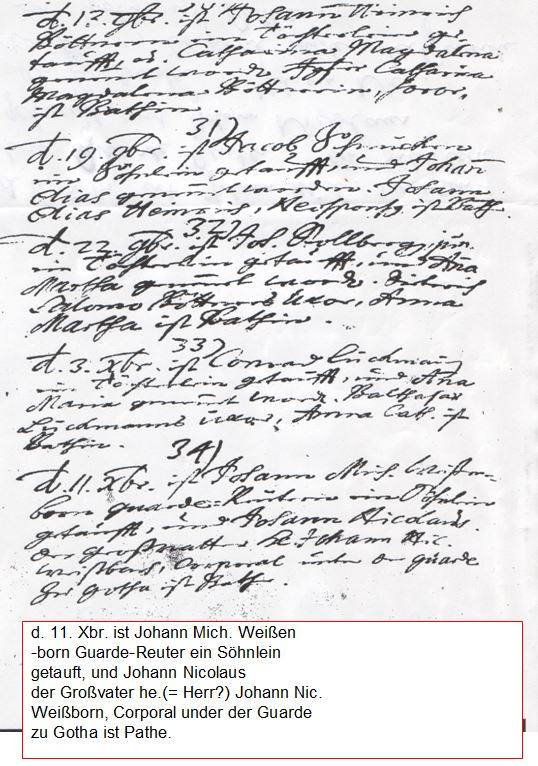 d. 12. 9br. ist Johann Heinrich
ein Töchterlein ge-
taufft, Catharina Magdalena
genennt worden, Catharina
Magdalena soror,
ist Pathin.
31)
d. 19. 9br. ist Jacob
ein Söhnlein getaufft, und Johann
Elias genennt worden. Johann
Elias ist Pathe.
32)
d. 22. 9br. ist Joh. jun.
ein Töchterlein getaufft, und Anna
Martha genennt worden.
Salomo uxor, Anna
Martha ist Pathin.
33)
d. 3. Xbr. ist Conrad Lückmann
ein Töchterlein getaufft, und Anna
Maria genennt word. Balthasar
Lückmanns uxor, Anna Cath. ist
Pathin.
34)
d. 11. Xbr. ist Johann Mich. Weißen-
born Guarde-Reutern ein Söhnlein
getaufft, und Johann Nicolaus
der Großvatter H. Johann Nic.
Weißborn, Corporal unter der Guarde
zu Gotha ist Pathe.
d. 11. Xbr. ist Johann Mich. Weißen
-born Guarde-Reuter ein Söhnlein
getauft, und Johann Nicolaus
der Großvater he.(= Herr?) Johann Nic.
Weißborn, Corporal under der Guarde
zu Gotha ist Pathe.